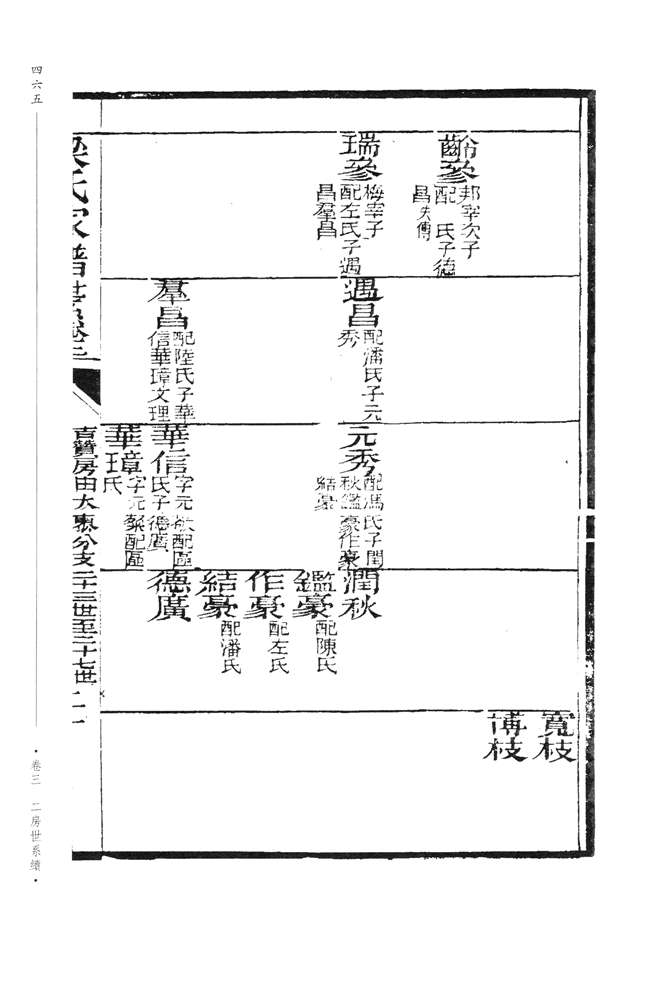 四六五
卷三 二房世系續
齡參
邦宰次子
配 氏子德
昌失傳
瑞參
梅宰子
配左氏子遇
昌羣昌
遇昌
配潘氏子元
秀
羣昌
配陸氏子華
信華璋文理
元秀
配馮氏子潤
秋鑑豪作豪
結豪
華信
字元 配區
氏子德廣
華璋
字元 配區
氏
潤秋
鑑豪
配陳氏
作豪
配左氏
結豪
配潘氏
德廣
寬枝
博枝
梁氏家譜世系卷三
直贊房由大 分支二十三世至二十七世